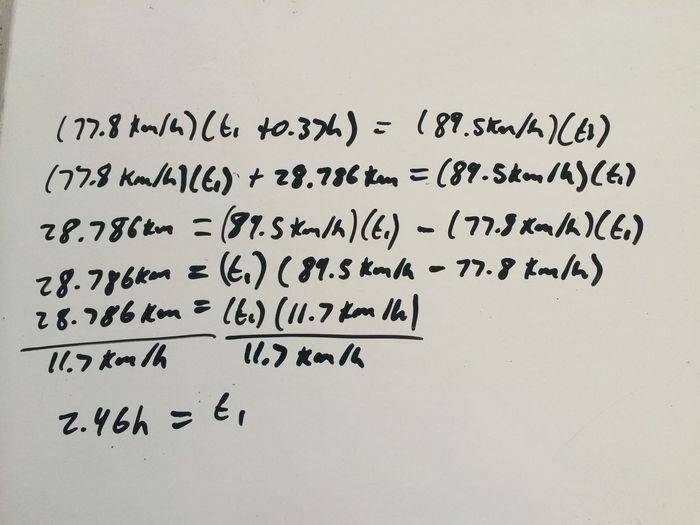 (77.8 km/h)(t₁ +0.37h) = (89.5km/h)(t₁)
(77.8 km/h)(t₁) + 28.786 km = (89.5km/h)(t₁)
28.786km = (89.5 km/h)(t₁) - (77.8 km/h)(t₁)
28.786km = (t₁)(89.5 km/h - 77.8 km/h)
28.786 km = (t₁)(11.7 km/h)
11.7 km/h 11.7 km/h
2.46h = t₁